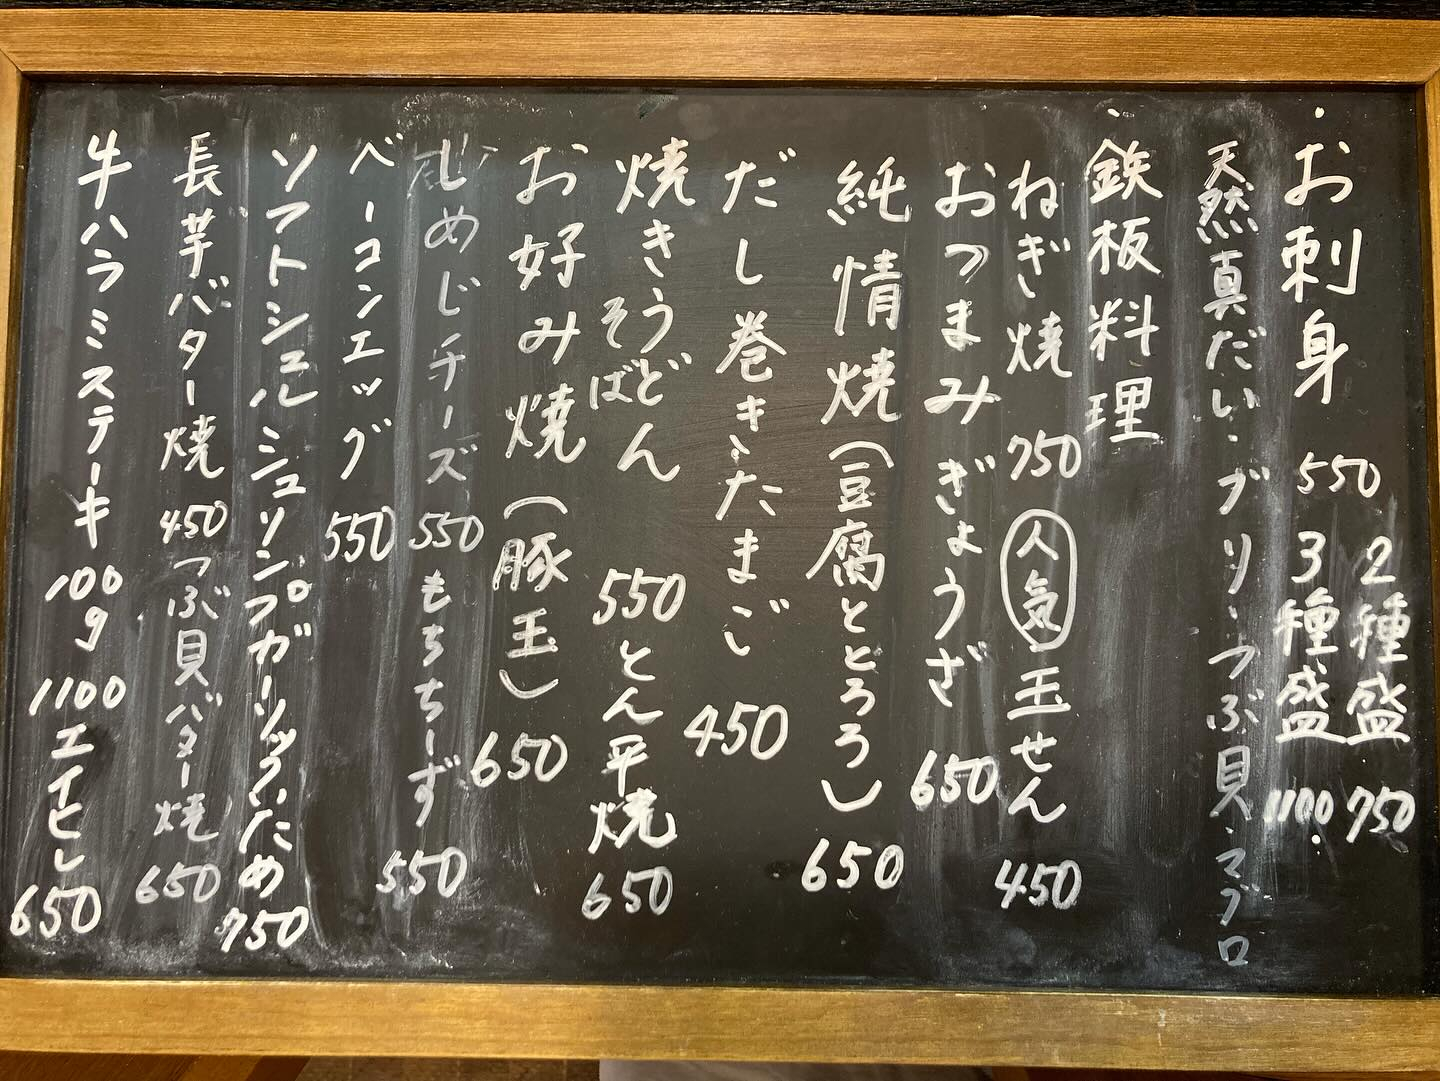 ・お刺身 550 2種盛 750
3種盛 1100・
天然真だい・ブリ・つぶ貝・マグロ
・鉄板料理
ねぎ焼 750 人気 玉せん 450
おつまみぎょうざ 650
純情焼(豆腐ととろろ) 650
だし巻きたまご 450
焼きうどん そば 550 とん平焼 650
お好み焼(豚玉) 650
しめじチーズ 550 もちちーず 550
ベーコンエッグ 550
ソフトシェルシュリンプガーリックいため 750
長芋バター焼 450 つぶ貝バター焼 650
牛ハラミステーキ 100g 1100 エイヒレ 650